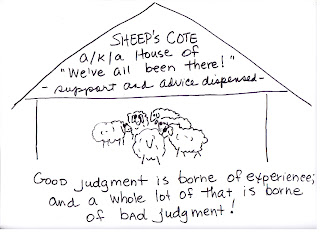 SHEEP'S COTE
a/k/a House of
"We've all been there!"
- support and advice dispensed -
Good judgment is borne of experience;
and a whole lot of that is borne
of bad judgment!